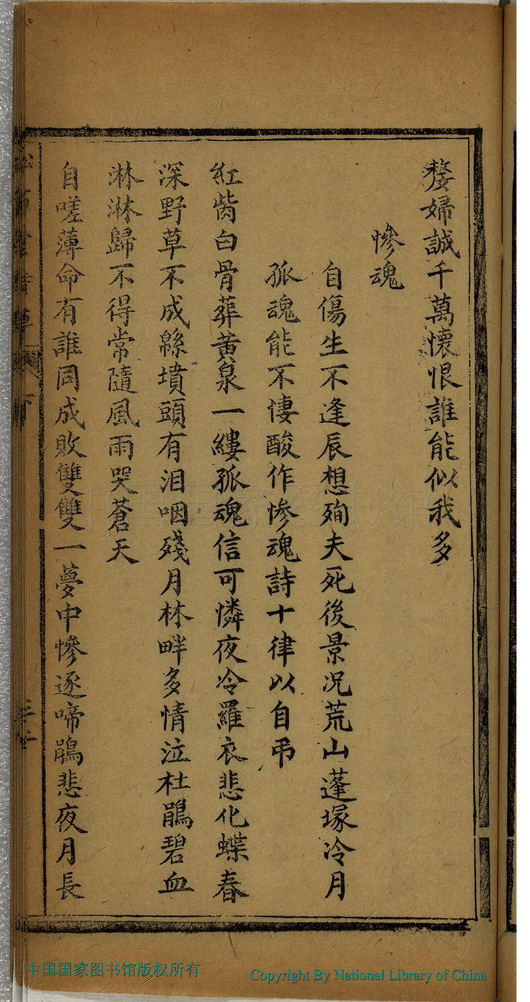 嫠婦誠千萬懷恨誰能似我多
慘魂
自傷生不逢辰想殉夫死後景况荒山蓬塚冷月
孤魂能不悽酸作慘魂詩十律以自弔
紅嵗白骨葬黄泉一縷孤魂信可憐夜冷羅衣悲化蝶春
深野草不成緜墳頭有泪咽殘月林畔多情泣杜鵑碧血
淋淋歸不得常隨風雨哭蒼天
自嗟薄命有誰同成敗雙雙一夢中慘逐啼鵑悲夜月長
中国国家图书馆版权所有
Copyright By National Library of China